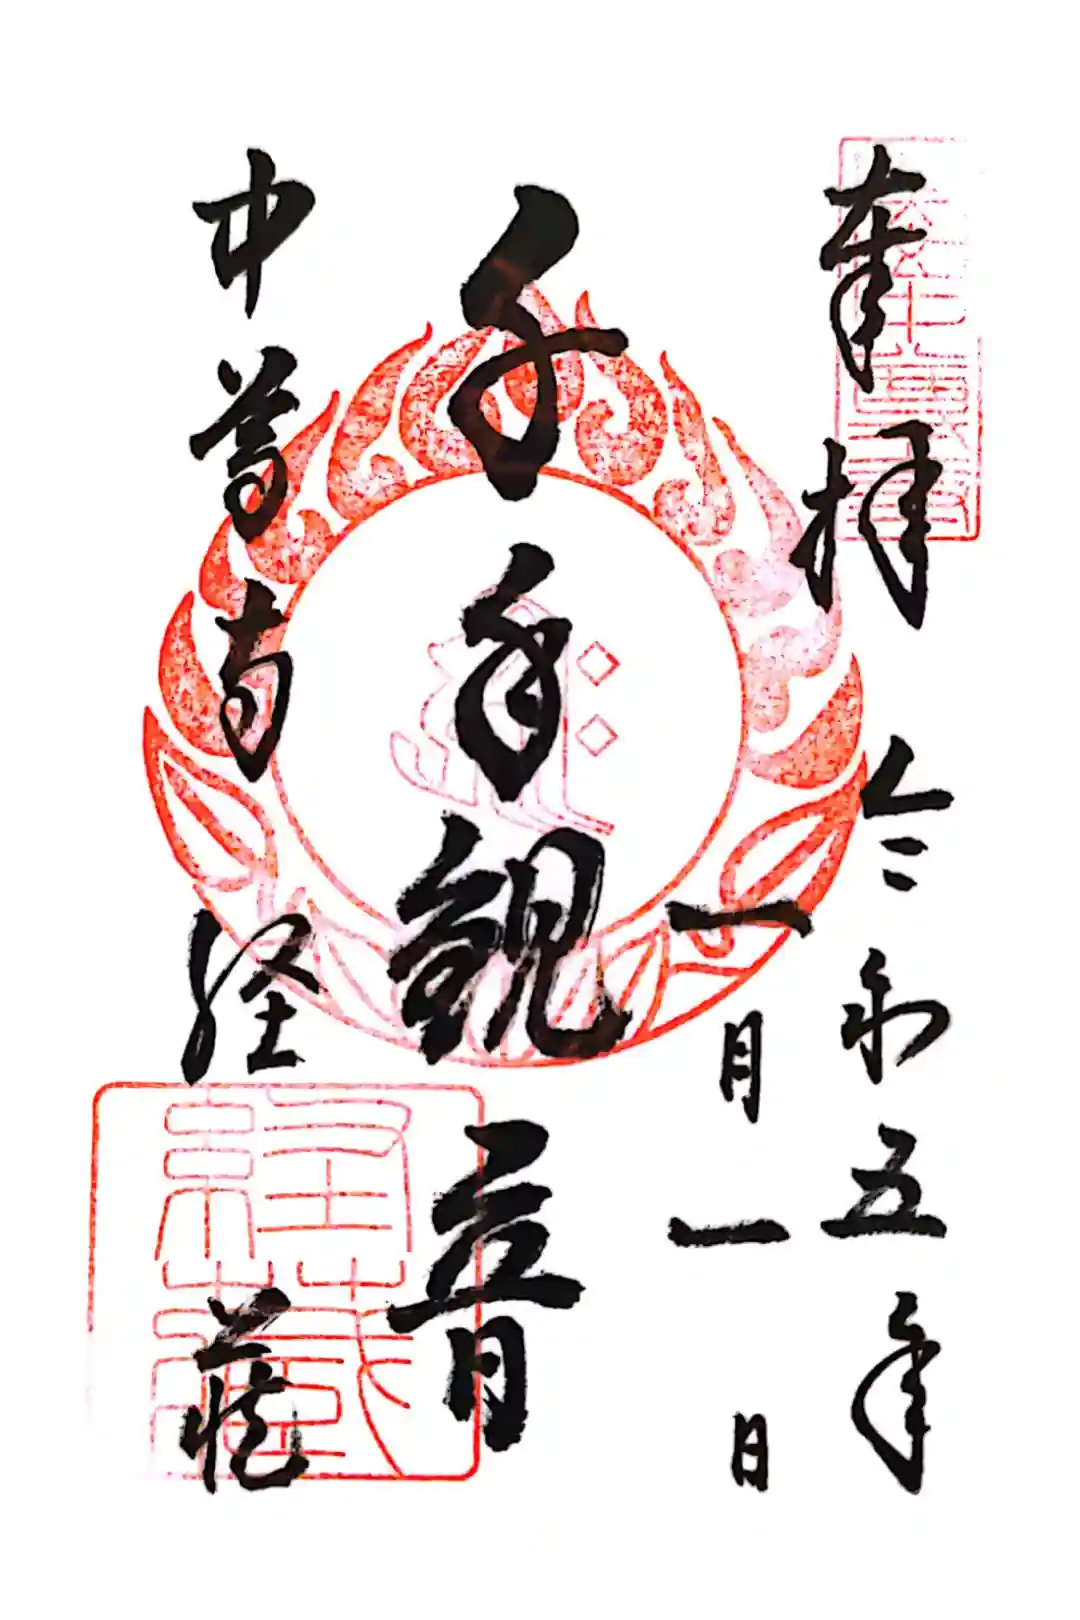 奉拝
令和五年
一月一日
千手観音
中尊寺
経蔵
経蔵